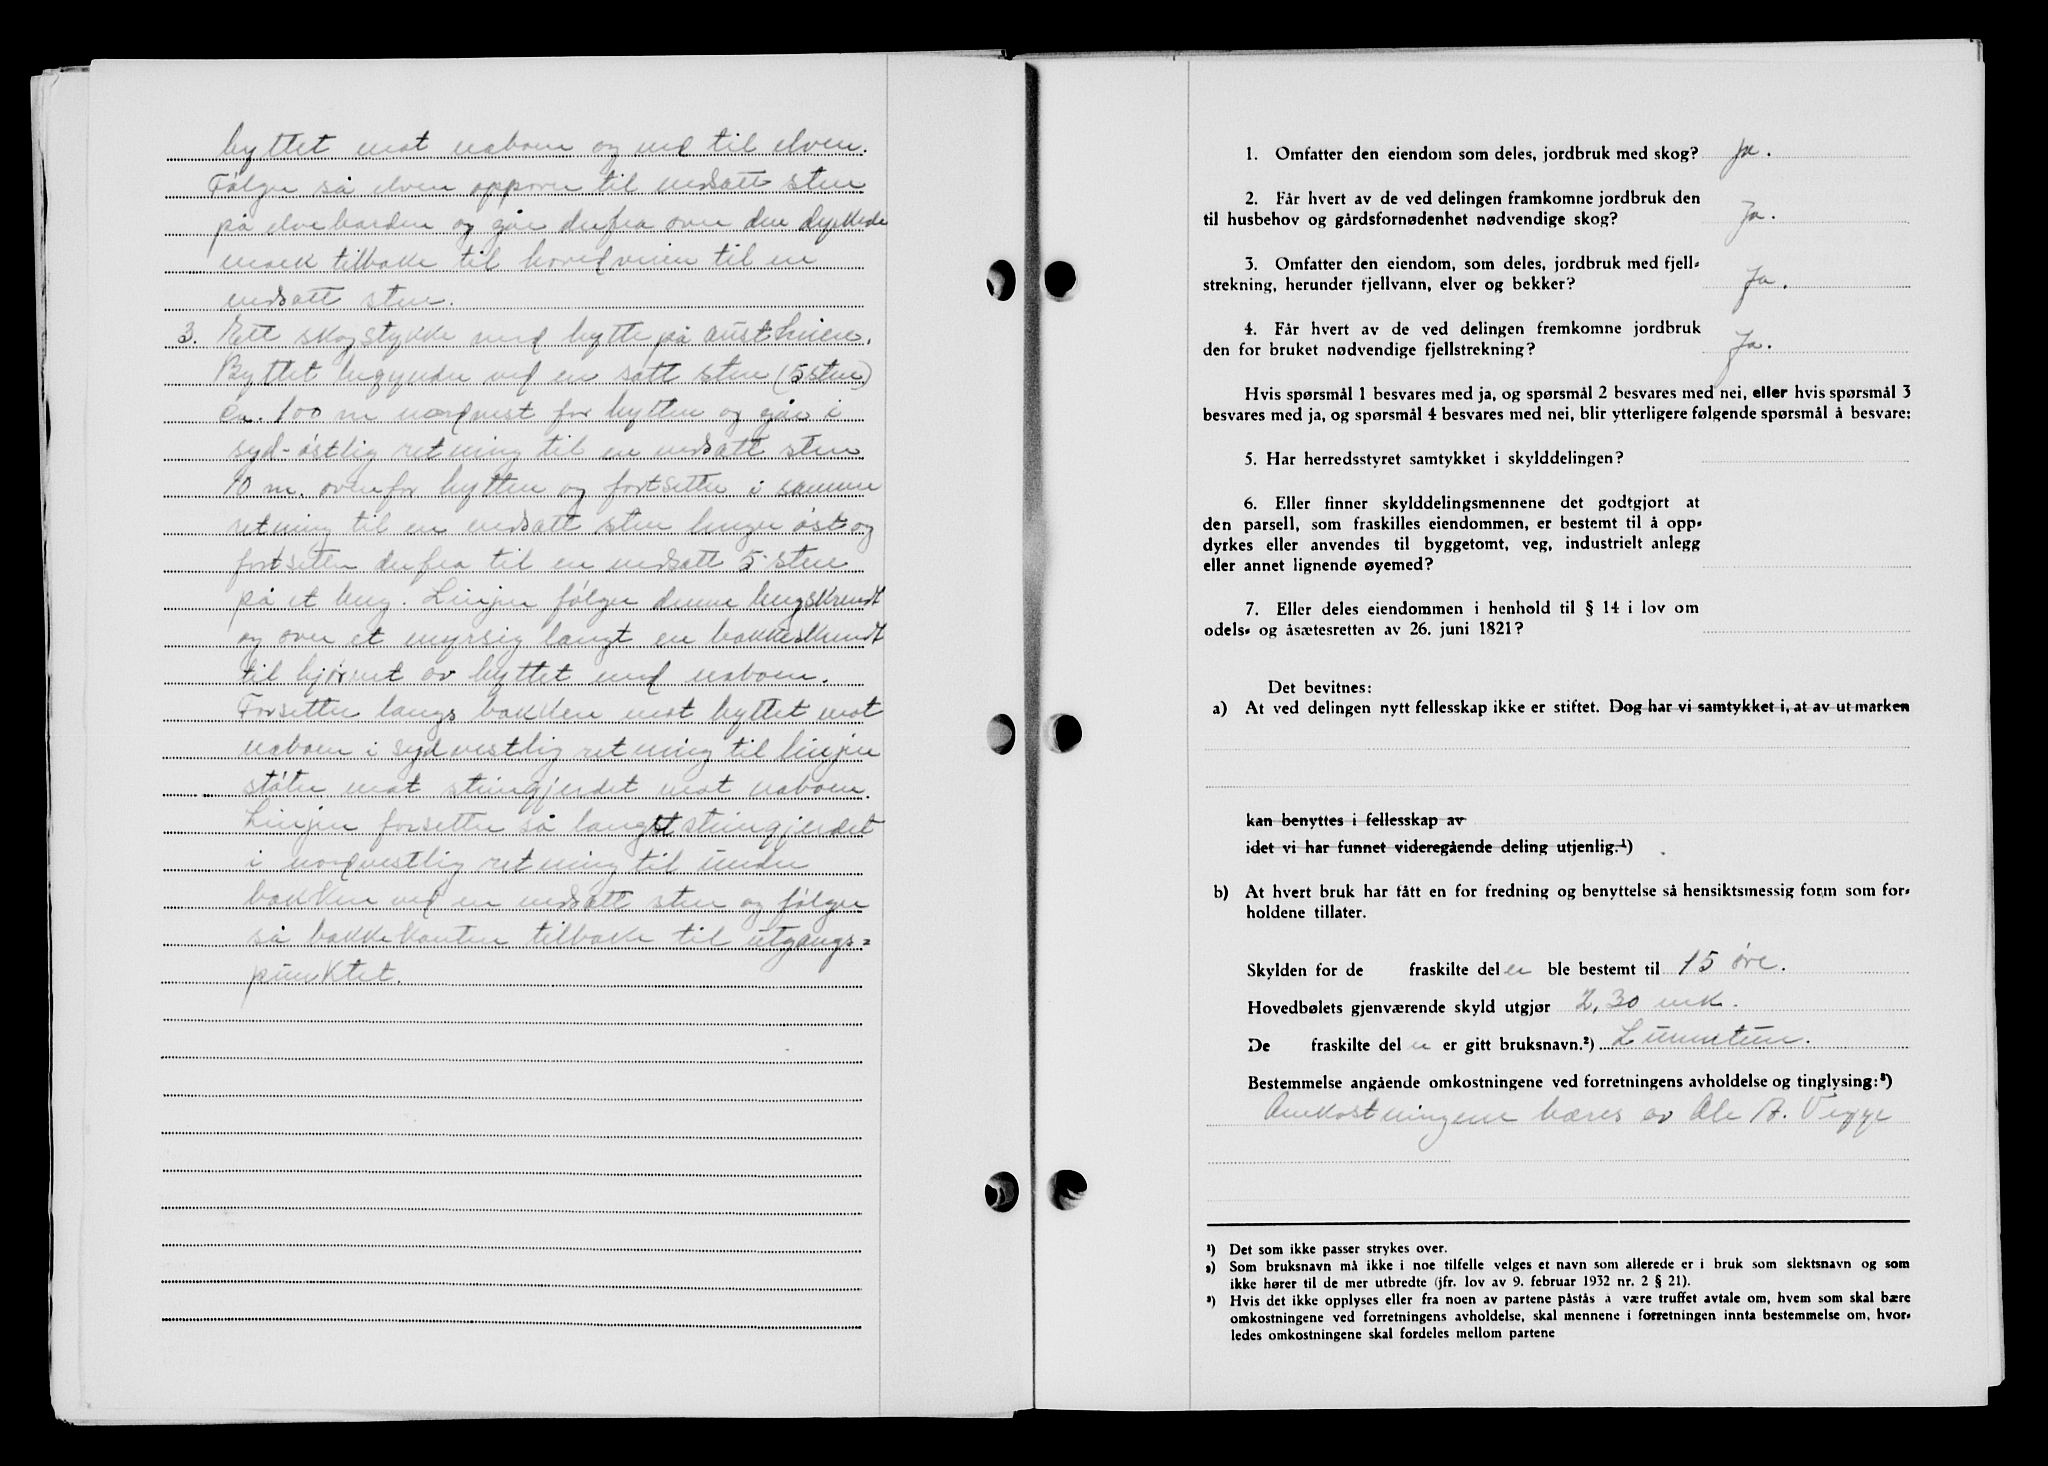 byttet mot naboen og ned til elven.
Følger så elven oppover til nedsatt sten
på elvebarden og går derfra over den dyrkede
mark tilbake til hovedveien til en
nedsatt sten.
3. Ett skogstykke med hytte på austlinen.
Byttet begynder ved en satt sten (5 sten)
ca. 100 m nordvest for hytten og går i
syd-østlig retning til en nedsatt sten
10 m. ovenfor hytten og fortsetter i samme
retning til en nedsatt sten lenger øst og
fortsetter derfra til en nedsatt 5-sten
på et berg. Linjen følger denne bergskrent
og over et myrsig langt en bakkeskrent
til hjørnet av byttet med naboen.
Forsetter langs bakken mot byttet mot
naboen i sydvestlig retning til linjen
støter mot steingjerdet mot naboen.
Linjen forsetter så langst steingjerdet
i nordvestlig retning til under
bakken ved en nedsatt sten og følger
så bakkekanten tilbake til utgangs=
punktet.
1. Omfatter den eiendom som deles, jordbruk med skog? Ja.
2. Får hvert av de ved delingen framkomne jordbruk den
til husbehov og gårdsfornødenhet nødvendige skog? Ja.
3. Omfatter den eiendom, som deles, jordbruk med fjell-
strekning, herunder fjellvann, elver og bekker? Ja.
4. Får hvert av de ved delingen fremkomne jordbruk
den for bruket nødvendige fjellstrekning? Ja.
Hvis spørsmål 1 besvares med ja, og spørsmål 2 besvares med nei, eller hvis spørsmål 3
besvares med ja, og spørsmål 4 besvares med nei, blir ytterligere følgende spørsmål å besvare:
5. Har herredsstyret samtykket i skylddelingen?
6. Eller finner skylddelingsmennene det godtgjort at
den parsell, som fraskilles eiendommen, er bestemt til å opp-
dyrkes eller anvendes til byggetomt, veg, industrielt anlegg
eller annet lignende øyemed?
7. Eller deles eiendommen i henhold til § 14 i lov om
odels- og åsætesretten av 26. juni 1821?
Det bevitnes:
a) At ved delingen nytt fellesskap ikke er stiftet. Dog har vi samtykket i, at av utmarken
kan benyttes i fellesskap av
idet vi har funnet videregående deling utjenlig.¹)
b) At hvert bruk har fått en for fredning og benyttelse så hensiktsmessig form som for-
holdene tillater.
Skylden for de fraskilte deler ble bestemt til 15 øre.
Hovedbølets gjenværende skyld utgjør 2,30 mk.
De fraskilte del er er gitt bruksnavn.²) Lunntun.
Bestemmelse angående omkostningene ved forretningens avholdelse og tinglysing:³)
Omkostningene bæres av Ole A. Vegge
¹) Det som ikke passer strykes over.
²) Som bruksnavn må ikke i noe tilfelle velges et navn som allerede er i bruk som slektsnavn og som
ikke hører til de mer utbredte (jfr. lov av 9. februar 1932 nr. 2 § 21).
³) Hvis det ikke opplyses eller fra noen av partene påstås å være truffet avtale om, hvem som skal bære
omkostningene ved forretningens avholdelse, skal mennene i forretningen innta bestemmelse om, hvor-
ledes omkostningene skal fordeles mellom partene